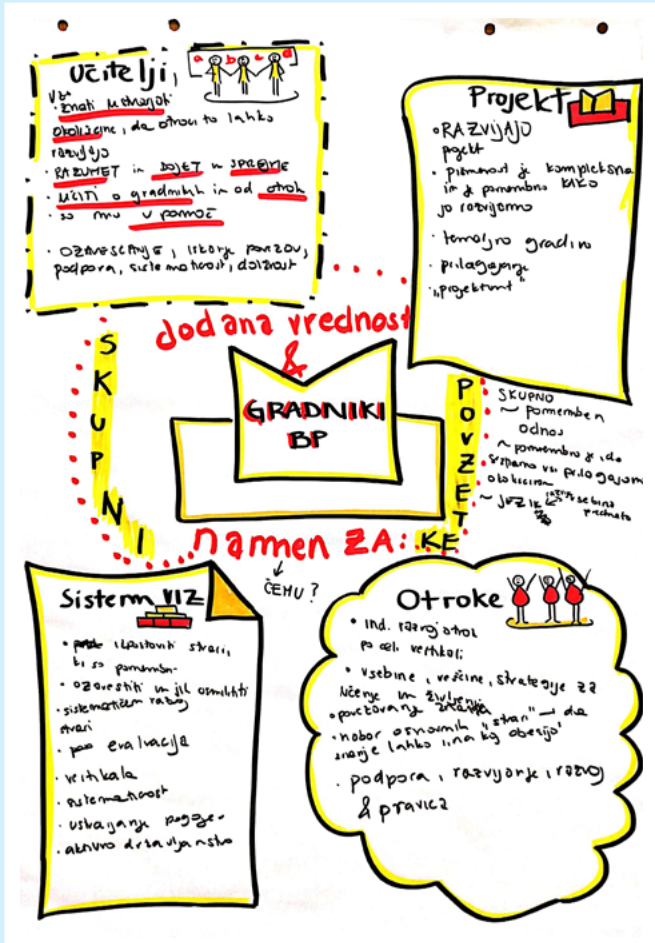 Učitelji,
a b c d
VIZ
· znati ustvarjati
okoliščine, da otroci to lahko
razvijajo
· RAZUMET in DOJET in SPREJME
· učiti o gradnikih in od otrok
· so mu v pomoč
· OZAVEŠČANJE, iskanje povezav,
podpora, sistematičnost, dolžnost
Projekt
· RAZVIJAJO
projekt
· pismenost je kompleksna
in je pomembno KAKO
jo razvijamo
· temeljno gradivo
· prilagajanje
· "projektnost"
dodana vrednost
&
GRADNIKI
BP
namen ZA:
ČEMU?
SKUPNI
POVZETKE
SKUPNO
~ pomemben
odnos
~ pomembno je, da
vsi prilagajamo
okoliščine
~ jezik
vsebine
predmeta
Sistem VIZ
· izpostaviti stvari,
ki so pomembn
· ozavestiti in jih osmisliti
· sistematičen razvoj
stvari
· evalvacija
· vertikala
· sistematičnost
· ustvarjanje pogojev
· aktivno državljanstvo
Otroke
· ind. razvoj otrok
po celi vertikali
· vsebine, veščine, strategije za
učenje in življenje
· povezovanje znanja
· nabor osnovnih "stvari" → da
znanje lahko "na kaj obesijo"
· podpora, razvijanje, razvoj
& pravica